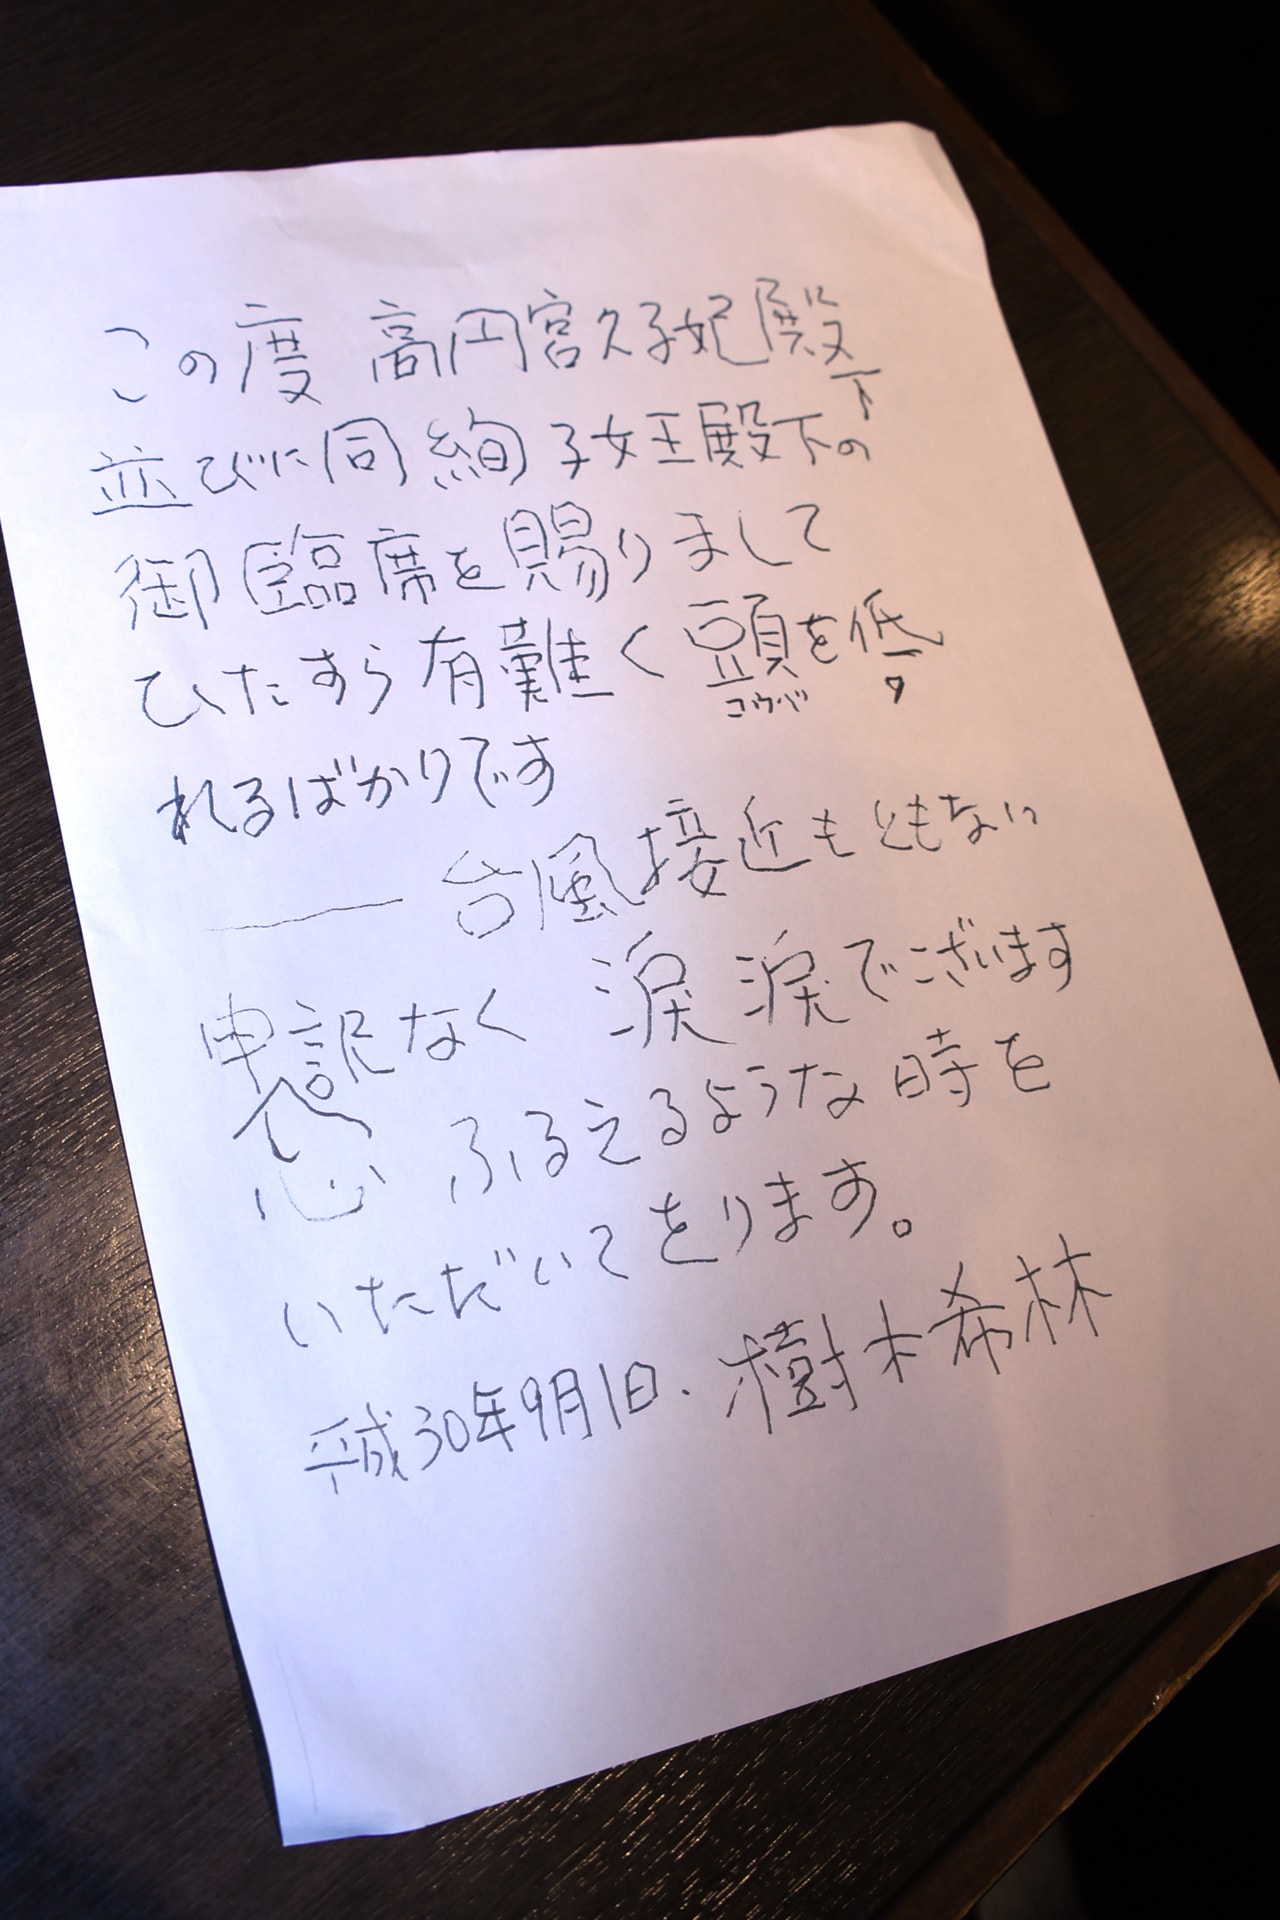 この度 高円宮久子妃殿下
並びに同絢子女王殿下の
御臨席を賜りまして
ひたすら有難く頭を低
コウベ タ
れるばかりです
――台風接近もともない
申訳なく 涙涙でございます
心ふるえるような時を
いただいてをります。
平成30年9月1日.樹木希林